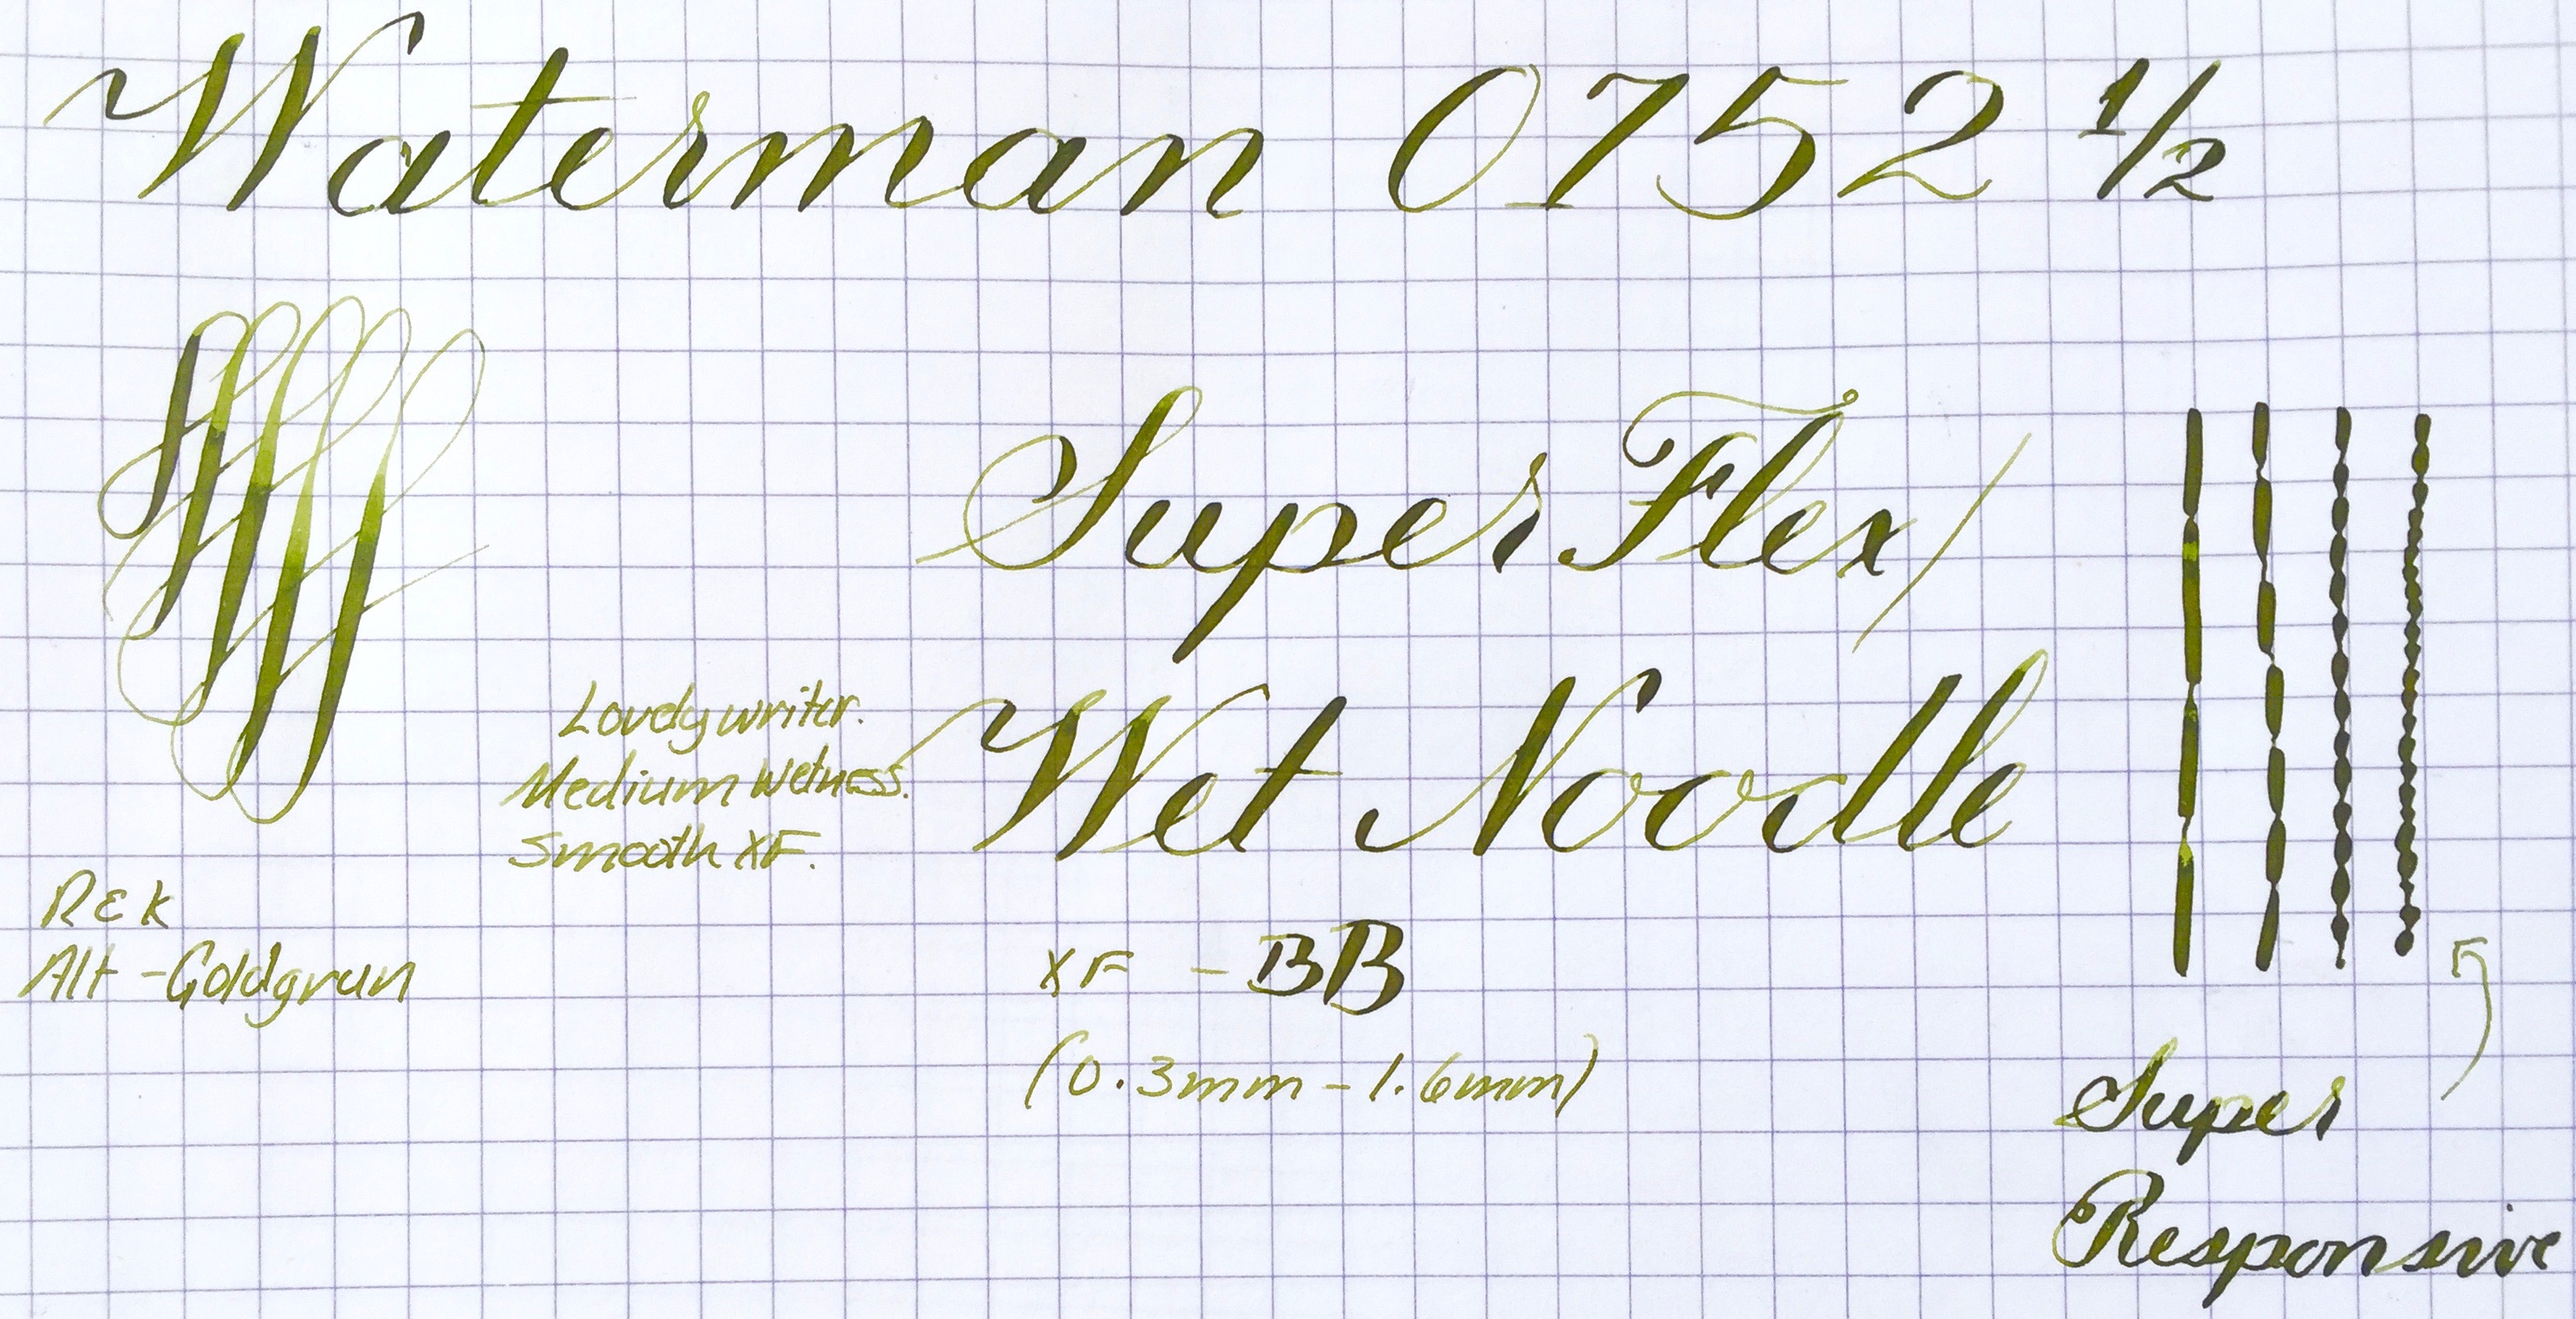 Waterman 0752 1/2
Super Flex/
Wet Noodle
Lovely writer.
Medium Wetness.
Smooth XF.
R&K
Alt-Goldgrun
XF - BB
(0.3mm - 1.6mm)
Super
Responsive